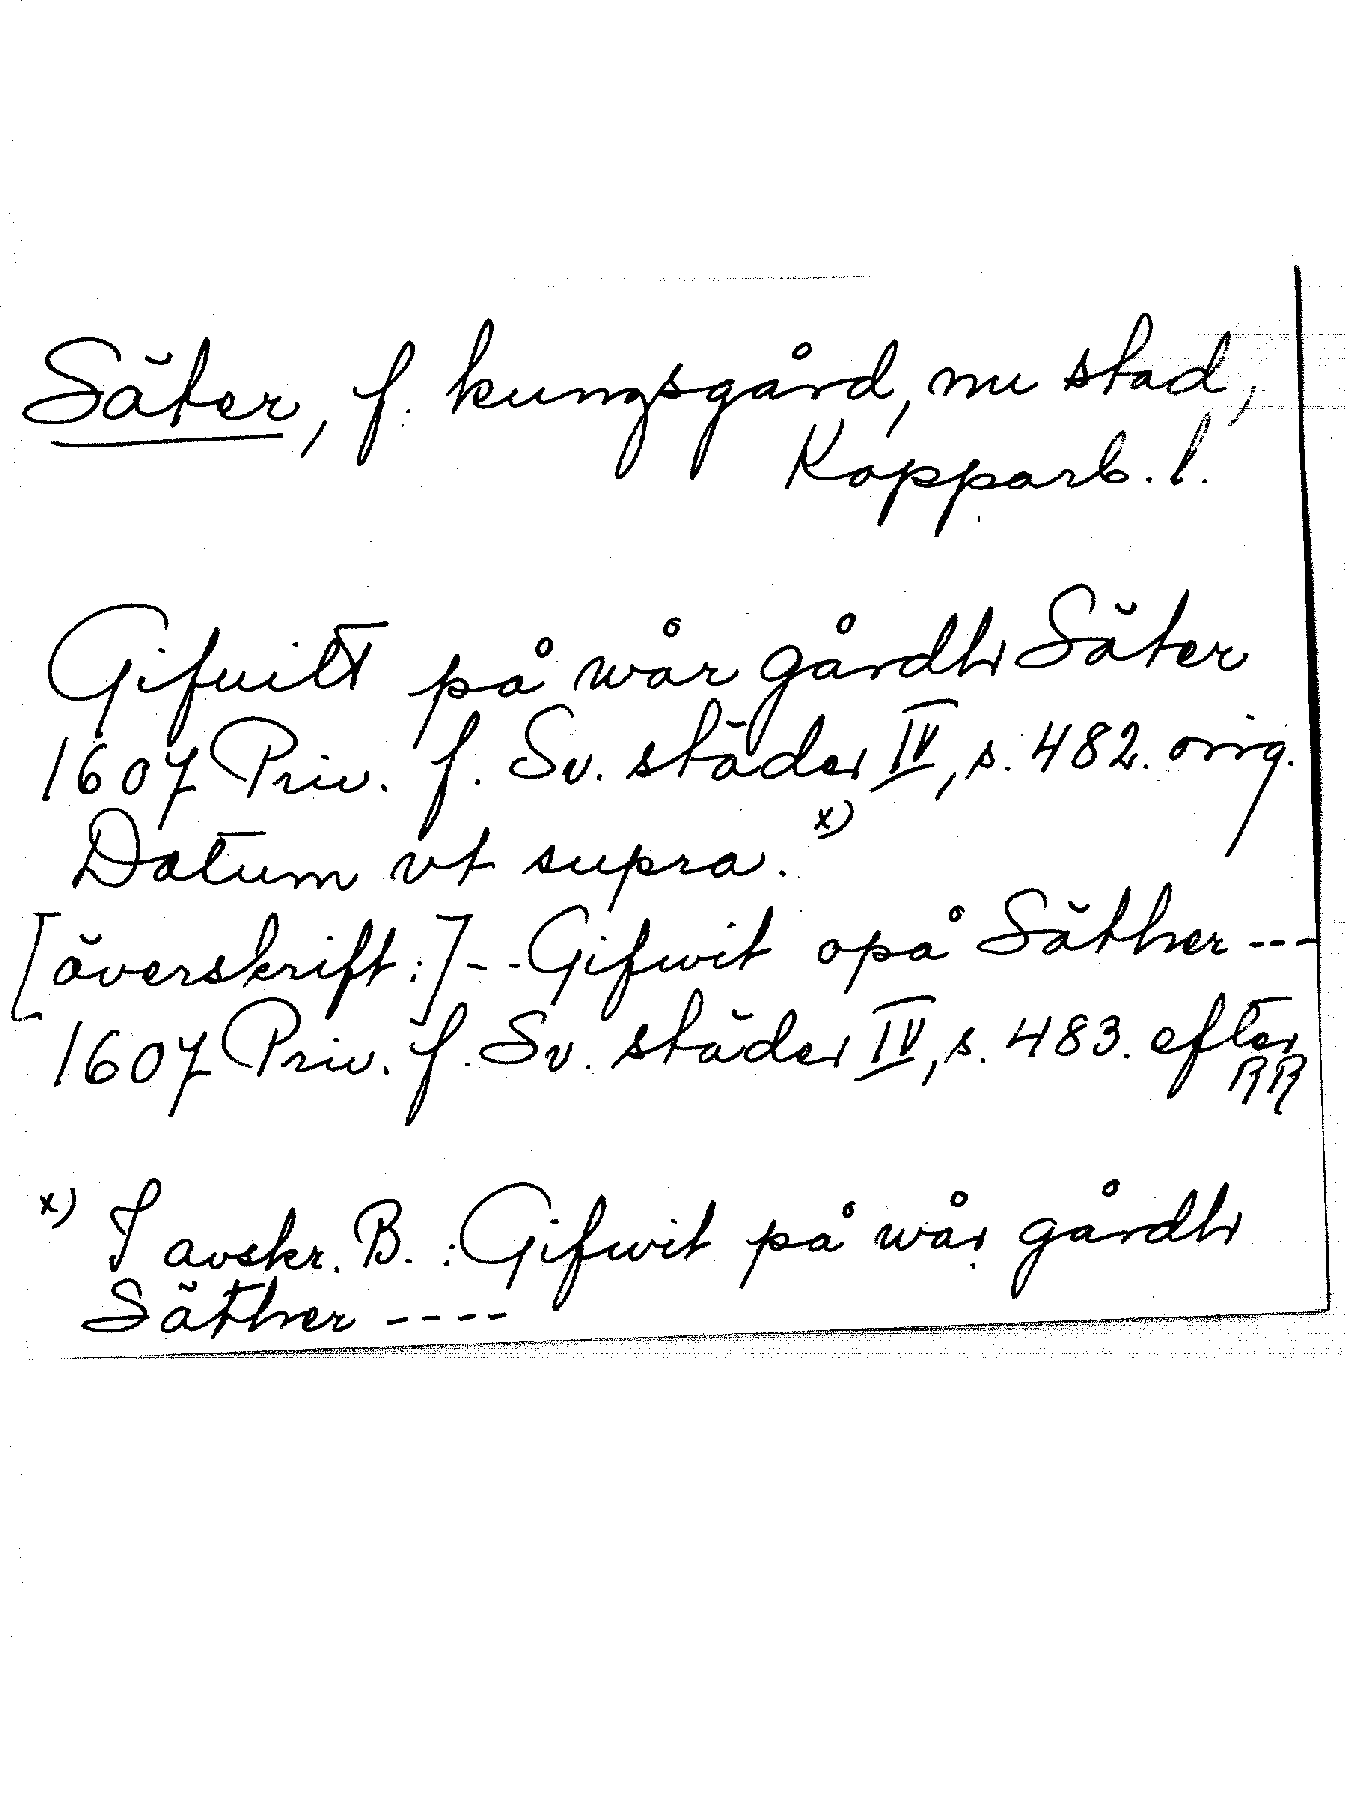 Säter, f. kungsgård, nu stad,
Kopparb. l.
Gifuitt på wår gårdh Säter
1607 Priv. f. Sv. städer IV, s. 482. orig.
Datum vt supra. x)
[överskrift:] -- Gifwit opå Säther ---
1607 Priv. f. Sv. städer IV, s. 483. efter
RR
x) I avskr. B. : Gifwit på wår gårdh
Säther ----